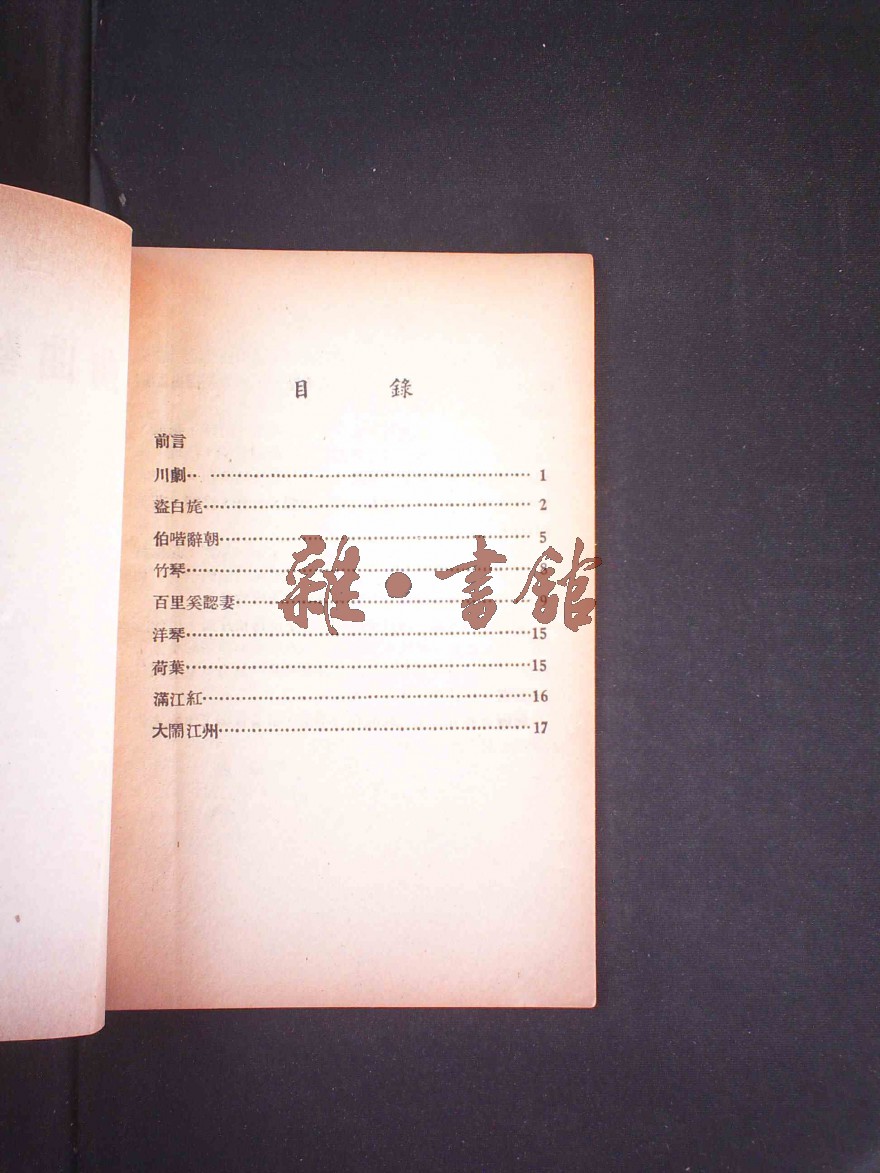 目 錄
前言
川劇·· ················································ 1
盜白旄················································ 2
伯喈辭朝·············································· 5
竹琴·················································· 8
百里奚認妻············································ 9
洋琴·················································· 15
荷葉·················································· 15
滿江紅················································ 16
大鬧江州·············································· 17
雜·書館